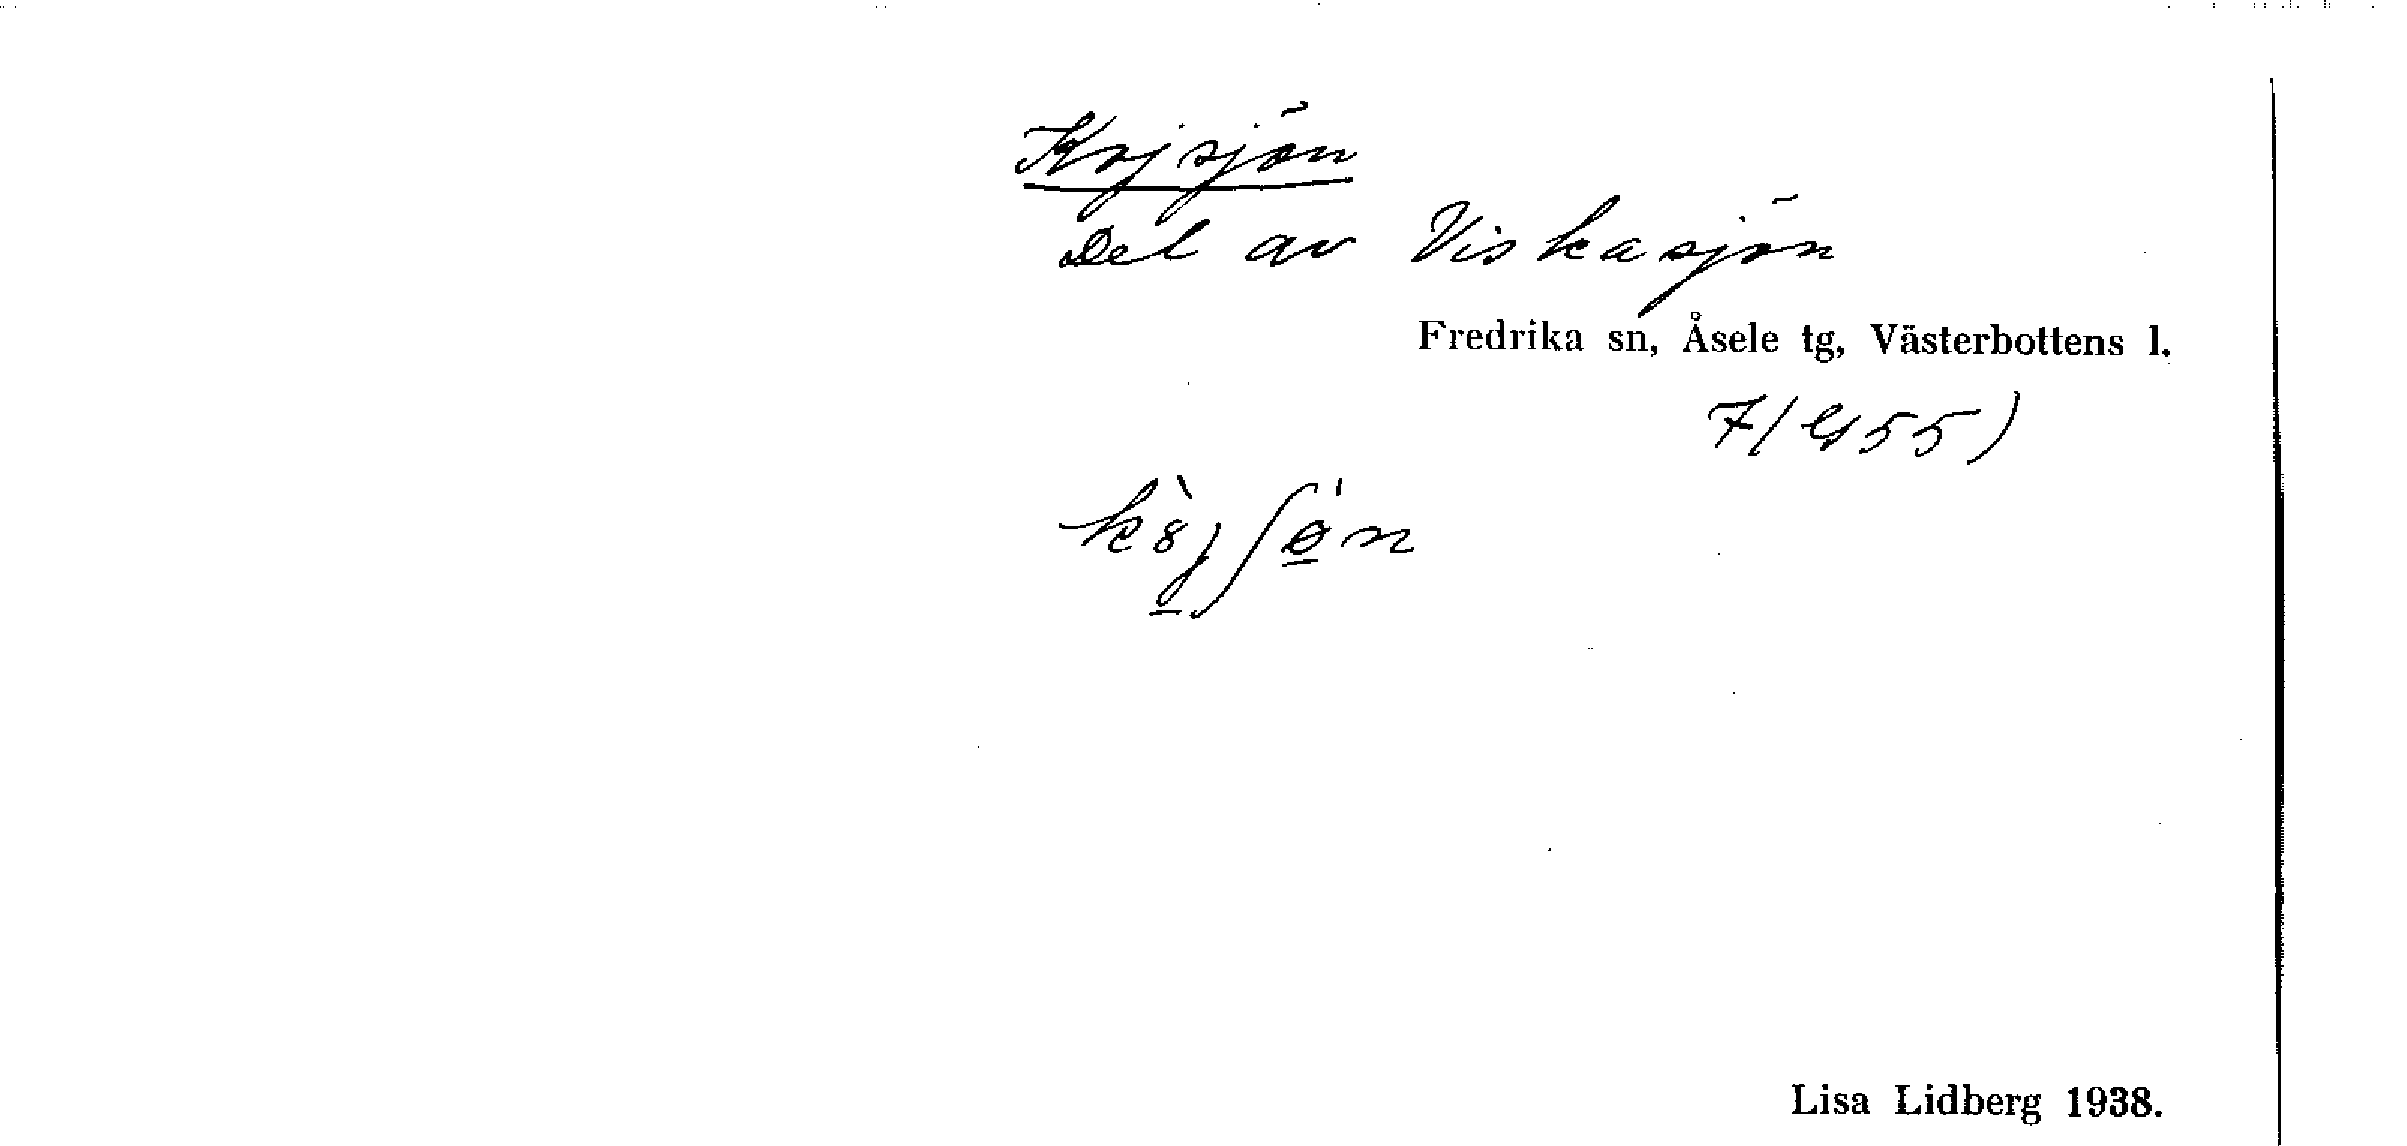 Kojsjön
Del av Viskasjön
Fredrika sn, Åsele tg, Västerbottens l.
k8̀j̲ʃǿ̲n
Lisa Lidberg 1938.